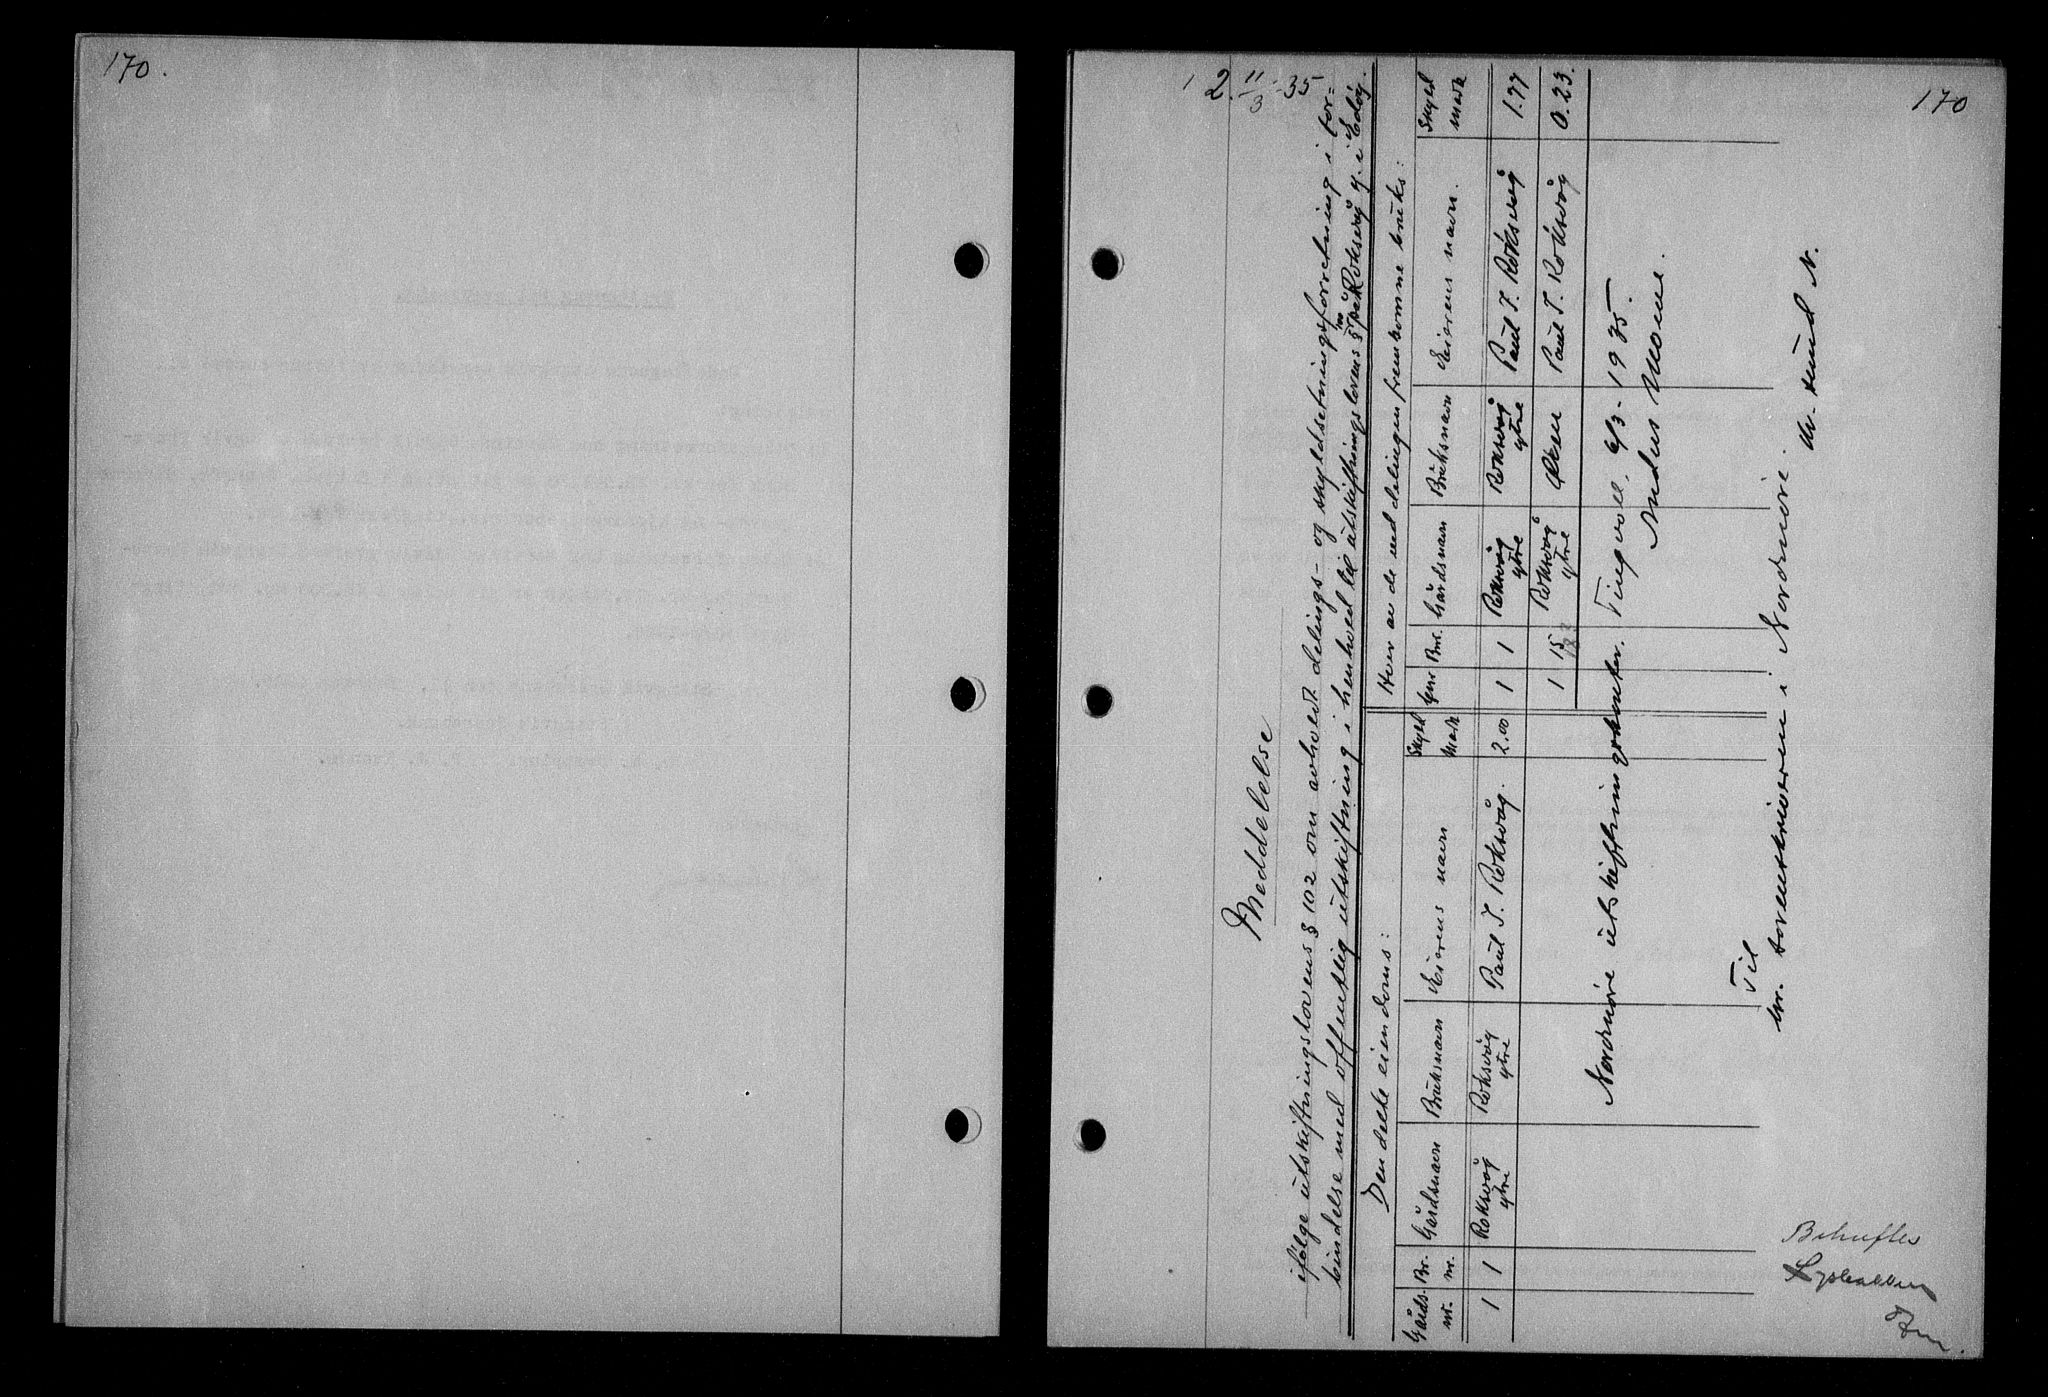 170.
170
2. 11/3-35
Meddelelse
ifølge utskiftningslovens § 102 om avholdt delings- og skyldsetningsforretning i for=
bindelse med offentlig utskiftning i henhold til utskiftningslovens § på Roksvåg y. i Edöy.
Den delte eiendoms:
Gårds. nr. Br. nr. Gårdsnavn Bruksnavn Eierens navn Skyld mark
1 1 Roksvåg ytre Roksvåg ytre Paul T. Roksvåg. 2.00
Hver av de ved delingen fremkomne bruks:
Gnr Bnr. Gårdsnavn Bruksnavn Eierens navn. Skyld mark
1 1 Roksvåg ytre Roksvåg ytre Paul T. Roksvåg 1.77
1 15 Roksvåg ytre Paul T. Roksvåg 0.23.
Nordmøre utskiftningskontor. Tingvoll, 6/3- 1935.
Anders Moene.
Til
hr. sorenskriveren i Nordmøre. Kr.sund N.